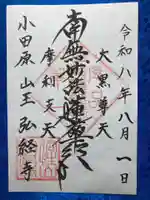 令和八年八月一日
大黒尊天
南無妙法蓮華経
摩利支天
小田原山王弘経寺